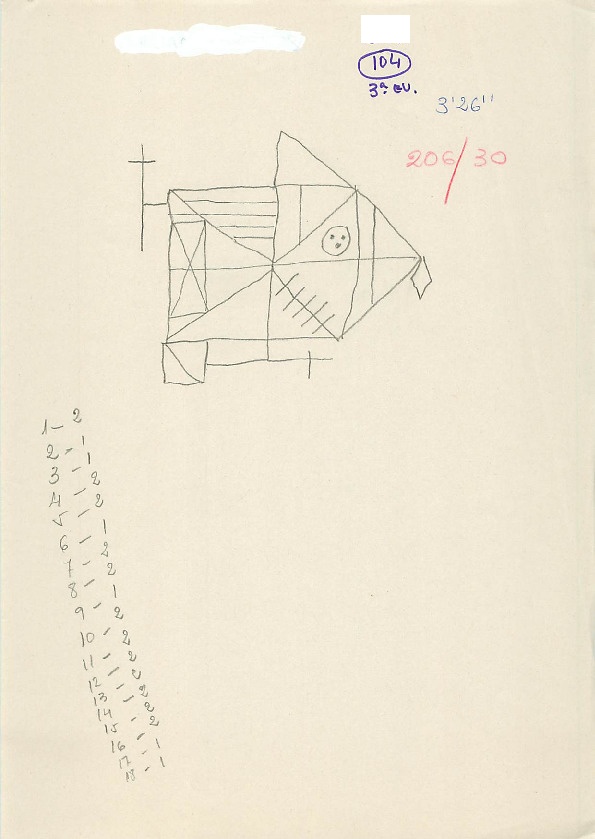 104
3ª ev.
3'26''
206/30
1 – 2
2 - 1
3 - 1
4 - 2
5 - 2
6 - 1
7 - 2
8 - 2
9 - 1
10 - 2
11 - 2
12 - 2
13 - 2
14 - 2
15 - 2
16 - 2
17 - 1
18 - 1